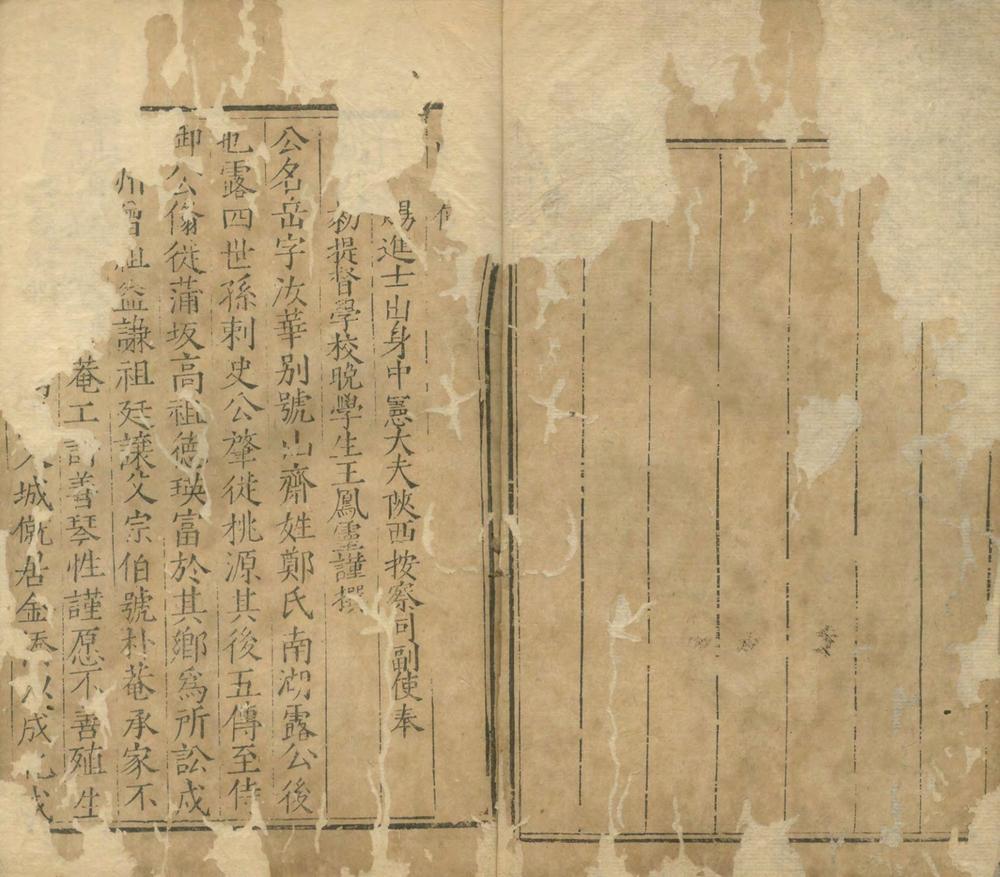 賜進士出身中憲大夫陝西按察司副使奉
勑提督學校晚學生王鳳靈謹撰
公名岳字汝華別號山齋姓鄭氏南湖露公後
也露四世孫刺史公肇徙桃源其後五傳至侍
御公脩徙蒲坂高祖德瑛富於其鄉為所訟戍
州曾祖益謙祖廷讓父宗伯號朴菴承家不
菴工詩善琴性謹愿不善殖生
城僦居金 以成化戊